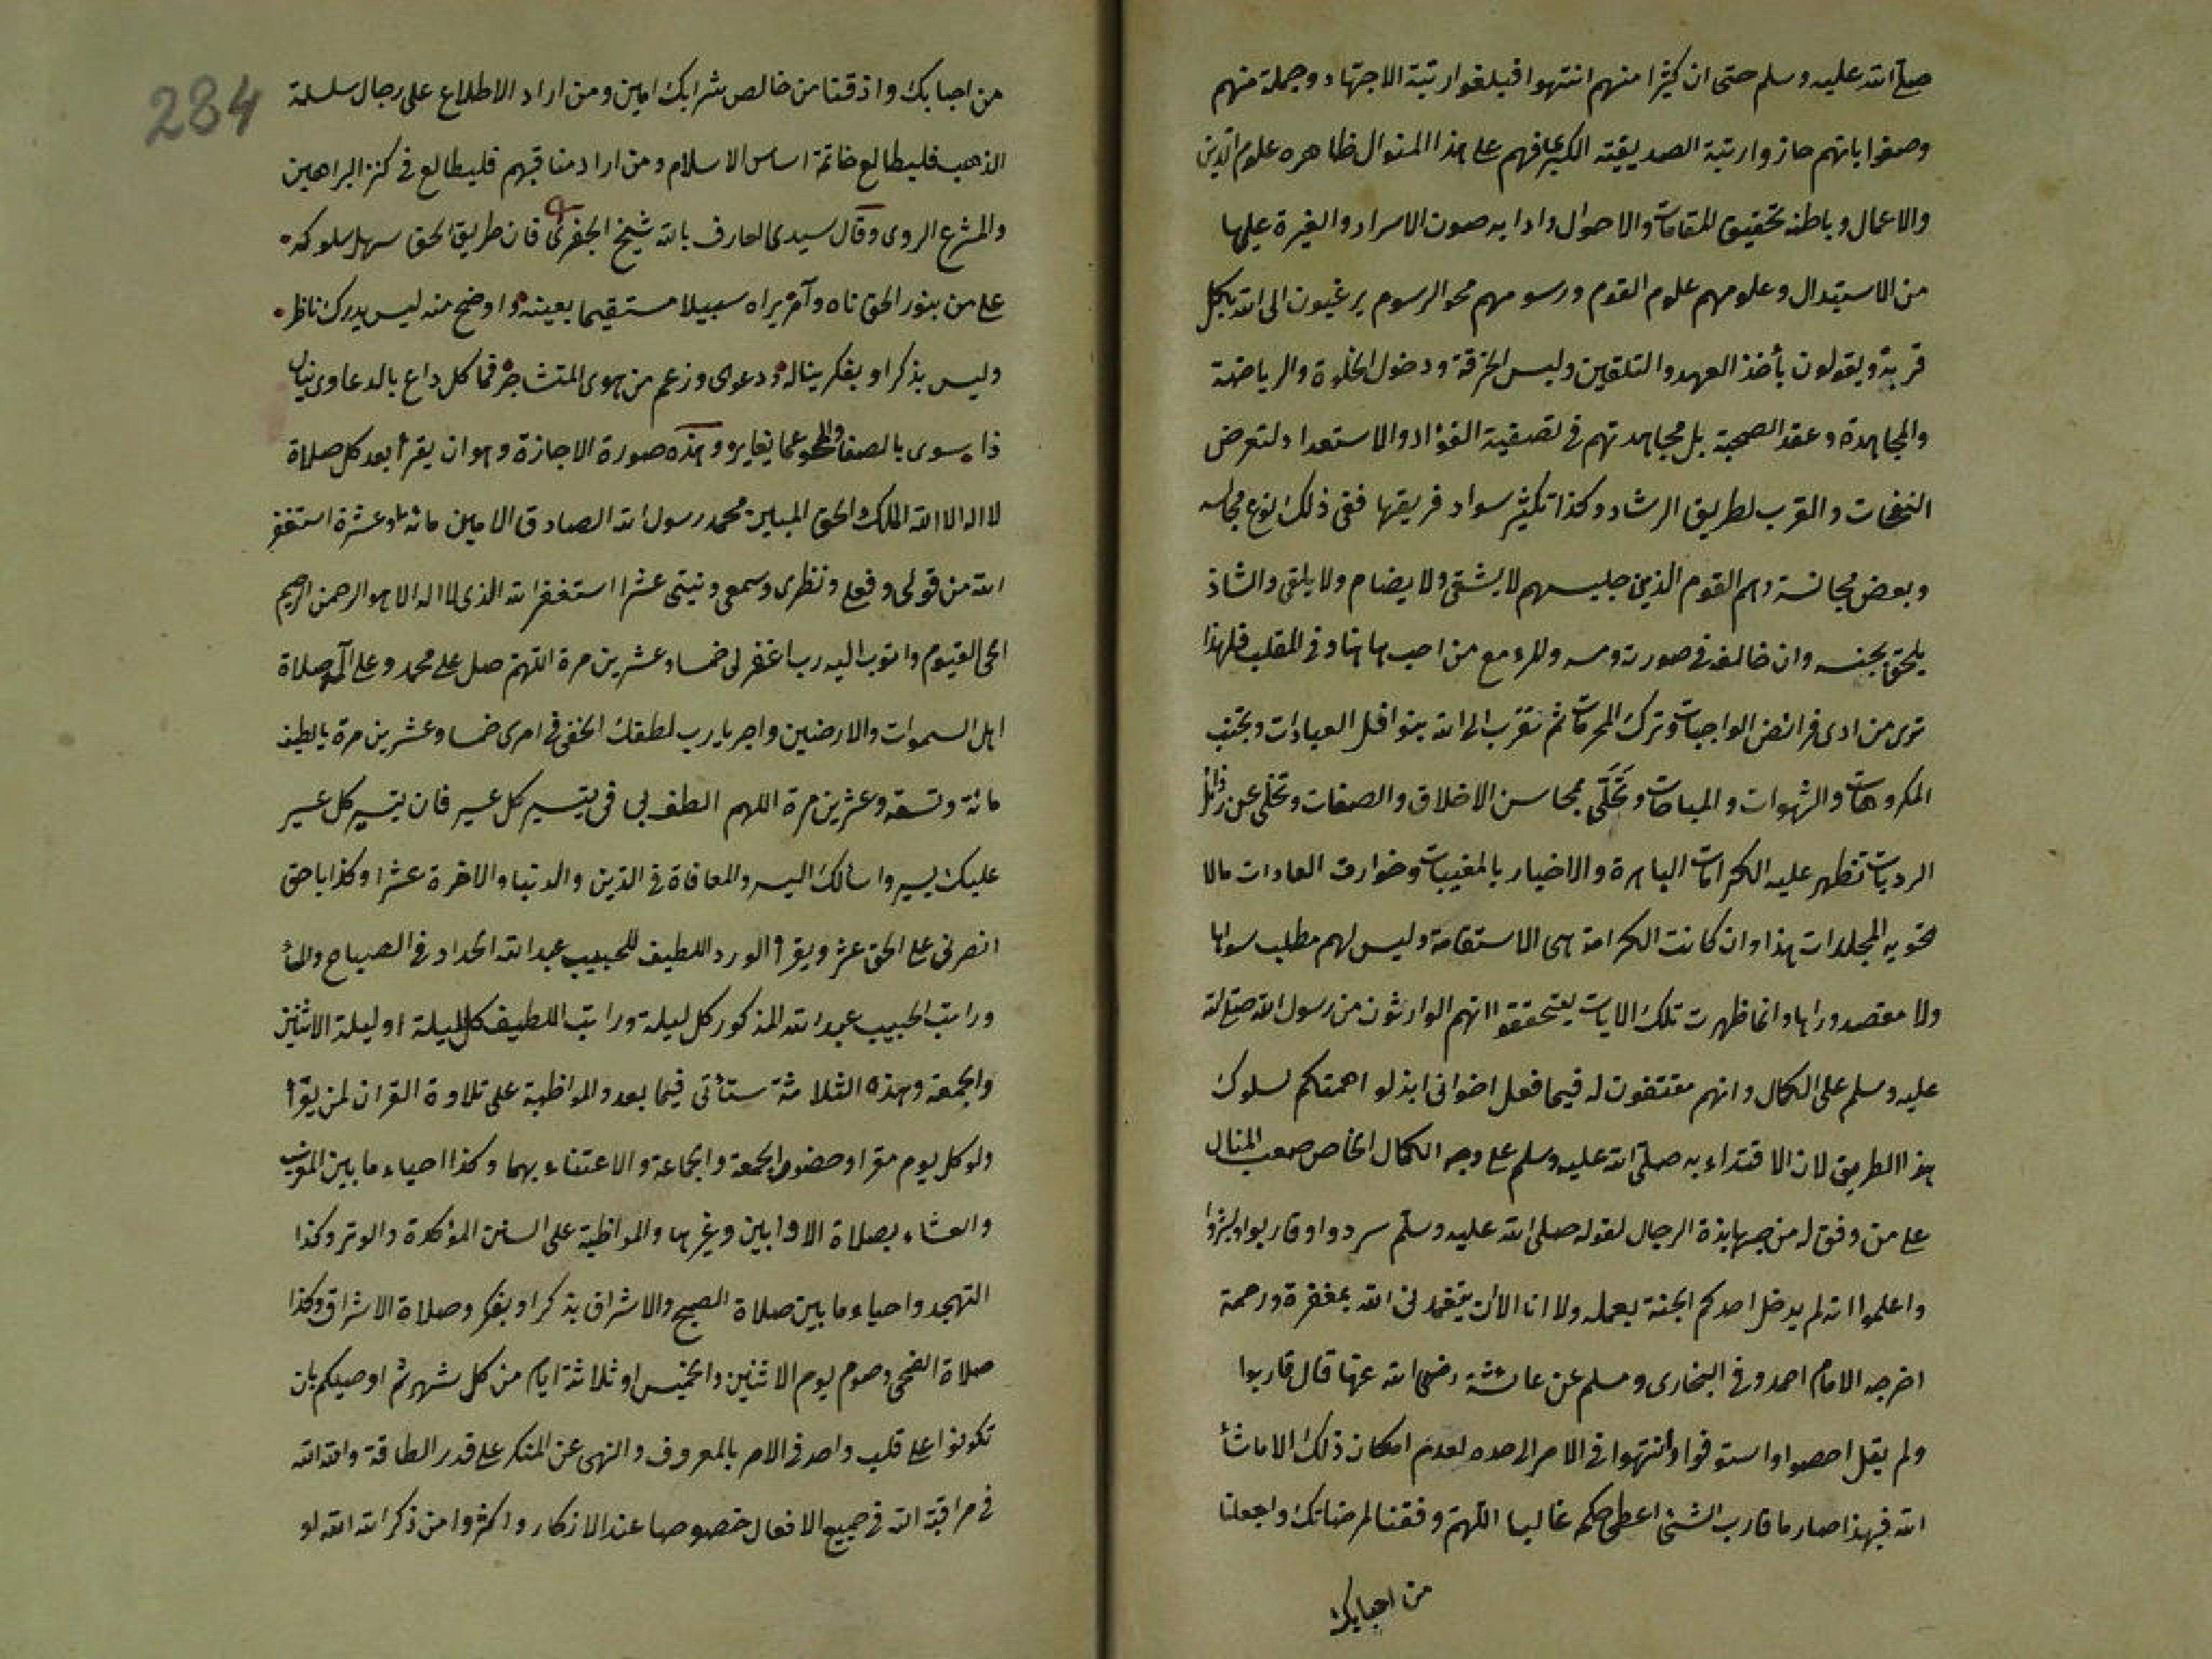 صلى الله عليه وسلم حتى ان كثيرا منهم انتهوا فبلغوا رتبة الاجتهاد وجملة منهم
وصفوا بانهم حازوا رتبة الصديقية الكبرى فهم على هذا المنوال ظاهره علوم الدين
والاعمال وباطنه تحقيق المقامات والاحوال وادابه صون الاسرار والغيرة عليها
من الاستبدال وعلومهم علوم القوم ورسومهم محو الرسوم يرغبون الى الله بكل
قربة ويقولون بأخذ العهد والتلقين ولبس الخرقة ودخول الخلوة والرياضة
والمجاهدة وعقد الصحبة بل مجاهدتهم في تصفية الفؤاد والاستعداد لتعرض
النفحات والقرب لطريق الرشاد وكذا تكثير سواد فريقها ففي ذلك نوع مجالسه
وبعض مجانسة وهم القوم الذين جليسهم لا يشقى ولا يضام ولا يلقى والشاذ
يلحق بجنسه وان خالف في صورته ومسه والمرء مع من احب هاهنا وفي المقلب فلهذا
ترى من ادى فرائض الواجبات وترك المحرمات ثم تقرب الى الله بنوافل العبادات وتجنب
المكروهات والشهوات والمباحات وتحلى بمحاسن الاخلاق والصفات وتخلى عن رذائل
الرديات تظهر عليه الكرامات الباهرة والاخبار بالمغيبات وخوارق العادات مالا
تحويه المجلدات هذا وان كانت الكرامة هي الاستقامة وليس لهم مطلب سواها
ولا مقصد وراها وانما ظهرت تلك الايات ليتحققوا انهم الوارثون من رسول الله صلى الله
عليه وسلم على الكمال وانهم مقتفون له فيما فعل اخواني ابذلوا همتكم لسلوك
هذا الطريق لان الاقتداء به صلى الله عليه وسلم على وجه الكمال الخاص صعب المنال
على من وفق له من جهابذة الرجال لقوله صلى الله عليه وسلم سددوا وقاربوا وابشروا
واعلموا انه لم يدخل احدكم الجنة بعمله ولا انا الا ان يتغمدني الله بمغفرة ورحمة
اخرجه الامام احمد وفي البخاري ومسلم عن عائشة رضي الله عنها قال قاربوا
ولم يقل احصوا واستوفوا وانتهوا في الامر الى حده لعدم امكان ذلك الا ماشأ
الله فبهذا صار ما قارب الشئ اعطى حكمه غالبا اللهم وفقنا لمرضاتك واجعلنا
من احبابك
284
من احبابك واذقنا من خالص شرابك امين ومن اراد الاطلاع على رجال سلسلة
الذهب فليطالع خاتمة اساس الاسلام ومن اراد مناقبهم فليطالع في كنز البراهين
والمشرع الروى وقال سيدى العارف بالله شيخ الجفرى فان طريق الحق سهل سلوكه
على من بنور الحق تاه وآمر يراه سبيلا مستقيما بعينه واوضح منه ليس يدرك ناظر
وليس بذكر او بفكر يناله ودعوى وزعم من هوى المتشاجر فما كل داع بالدعاوى ينال
ذا سوى بالصفا والمحو عما يغاير وهذه صورة الاجازة وهو ان يقرأ بعد كل صلاة
لا اله الا الله الملك الحق المبين محمد رسول الله الصادق الامين مائة او عشرة استغفر
الله من قولى وفعلى ونظرى وسمعى ونيتى عشرا استغفر الله الذى لا اله الا هو الرحمن الرحيم
الحى القيوم واتوب اليه رب اغفر لى خمسا وعشرين مرة اللهم صل على محمد وعلى آله صلاة
اهل السموات والارضين واجر يا رب لطفك الخفى في امرى خمسا وعشرين مرة يا لطيف
مائة وتسعة وعشرين مرة اللهم الطف بى في تيسير كل عسير فان تيسير كل عسير
عليك يسير واسألك اليسر والمعافاة في الدين والدنيا والاخرة عشرا وكذا يا حق
انصرنى على الحق عشر ويقرأ الورد اللطيف للحبيب عبد الله الحداد في الصباح والمسأ
وراتب الحبيب عبد الله المذكور كل ليلة وراتب اللطيف كل ليلة او ليلة الاثنين
والجمعة وهذه الثلاثة ستأتى فيما بعد والمواظبة على تلاوة القران لمن يقرأ
ولو كل يوم مقرا وحضور الجمعة والجماعة والاعتناء بهما وكذا احياء ما بين المغرب
والعشاء بصلاة الاوابين وغيرها والمواظبة على السنن المؤكدة والوتر وكذا
التهجد واحياء ما بين صلاة الصبح والاشراق بذكر او بفكر وصلاة الاشراق وكذا
صلاة الضحى وصوم يوم الاثنين والخميس او ثلاثة ايام من كل شهر ثم اوصيكم بان
تكونوا على قلب واحد في الامر بالمعروف والنهى عن المنكر على قدر الطاقة والله الله
في مراقبة الله في جميع الافعال خصوصا عند الاذكار واكثروا من ذكر الله الله لو